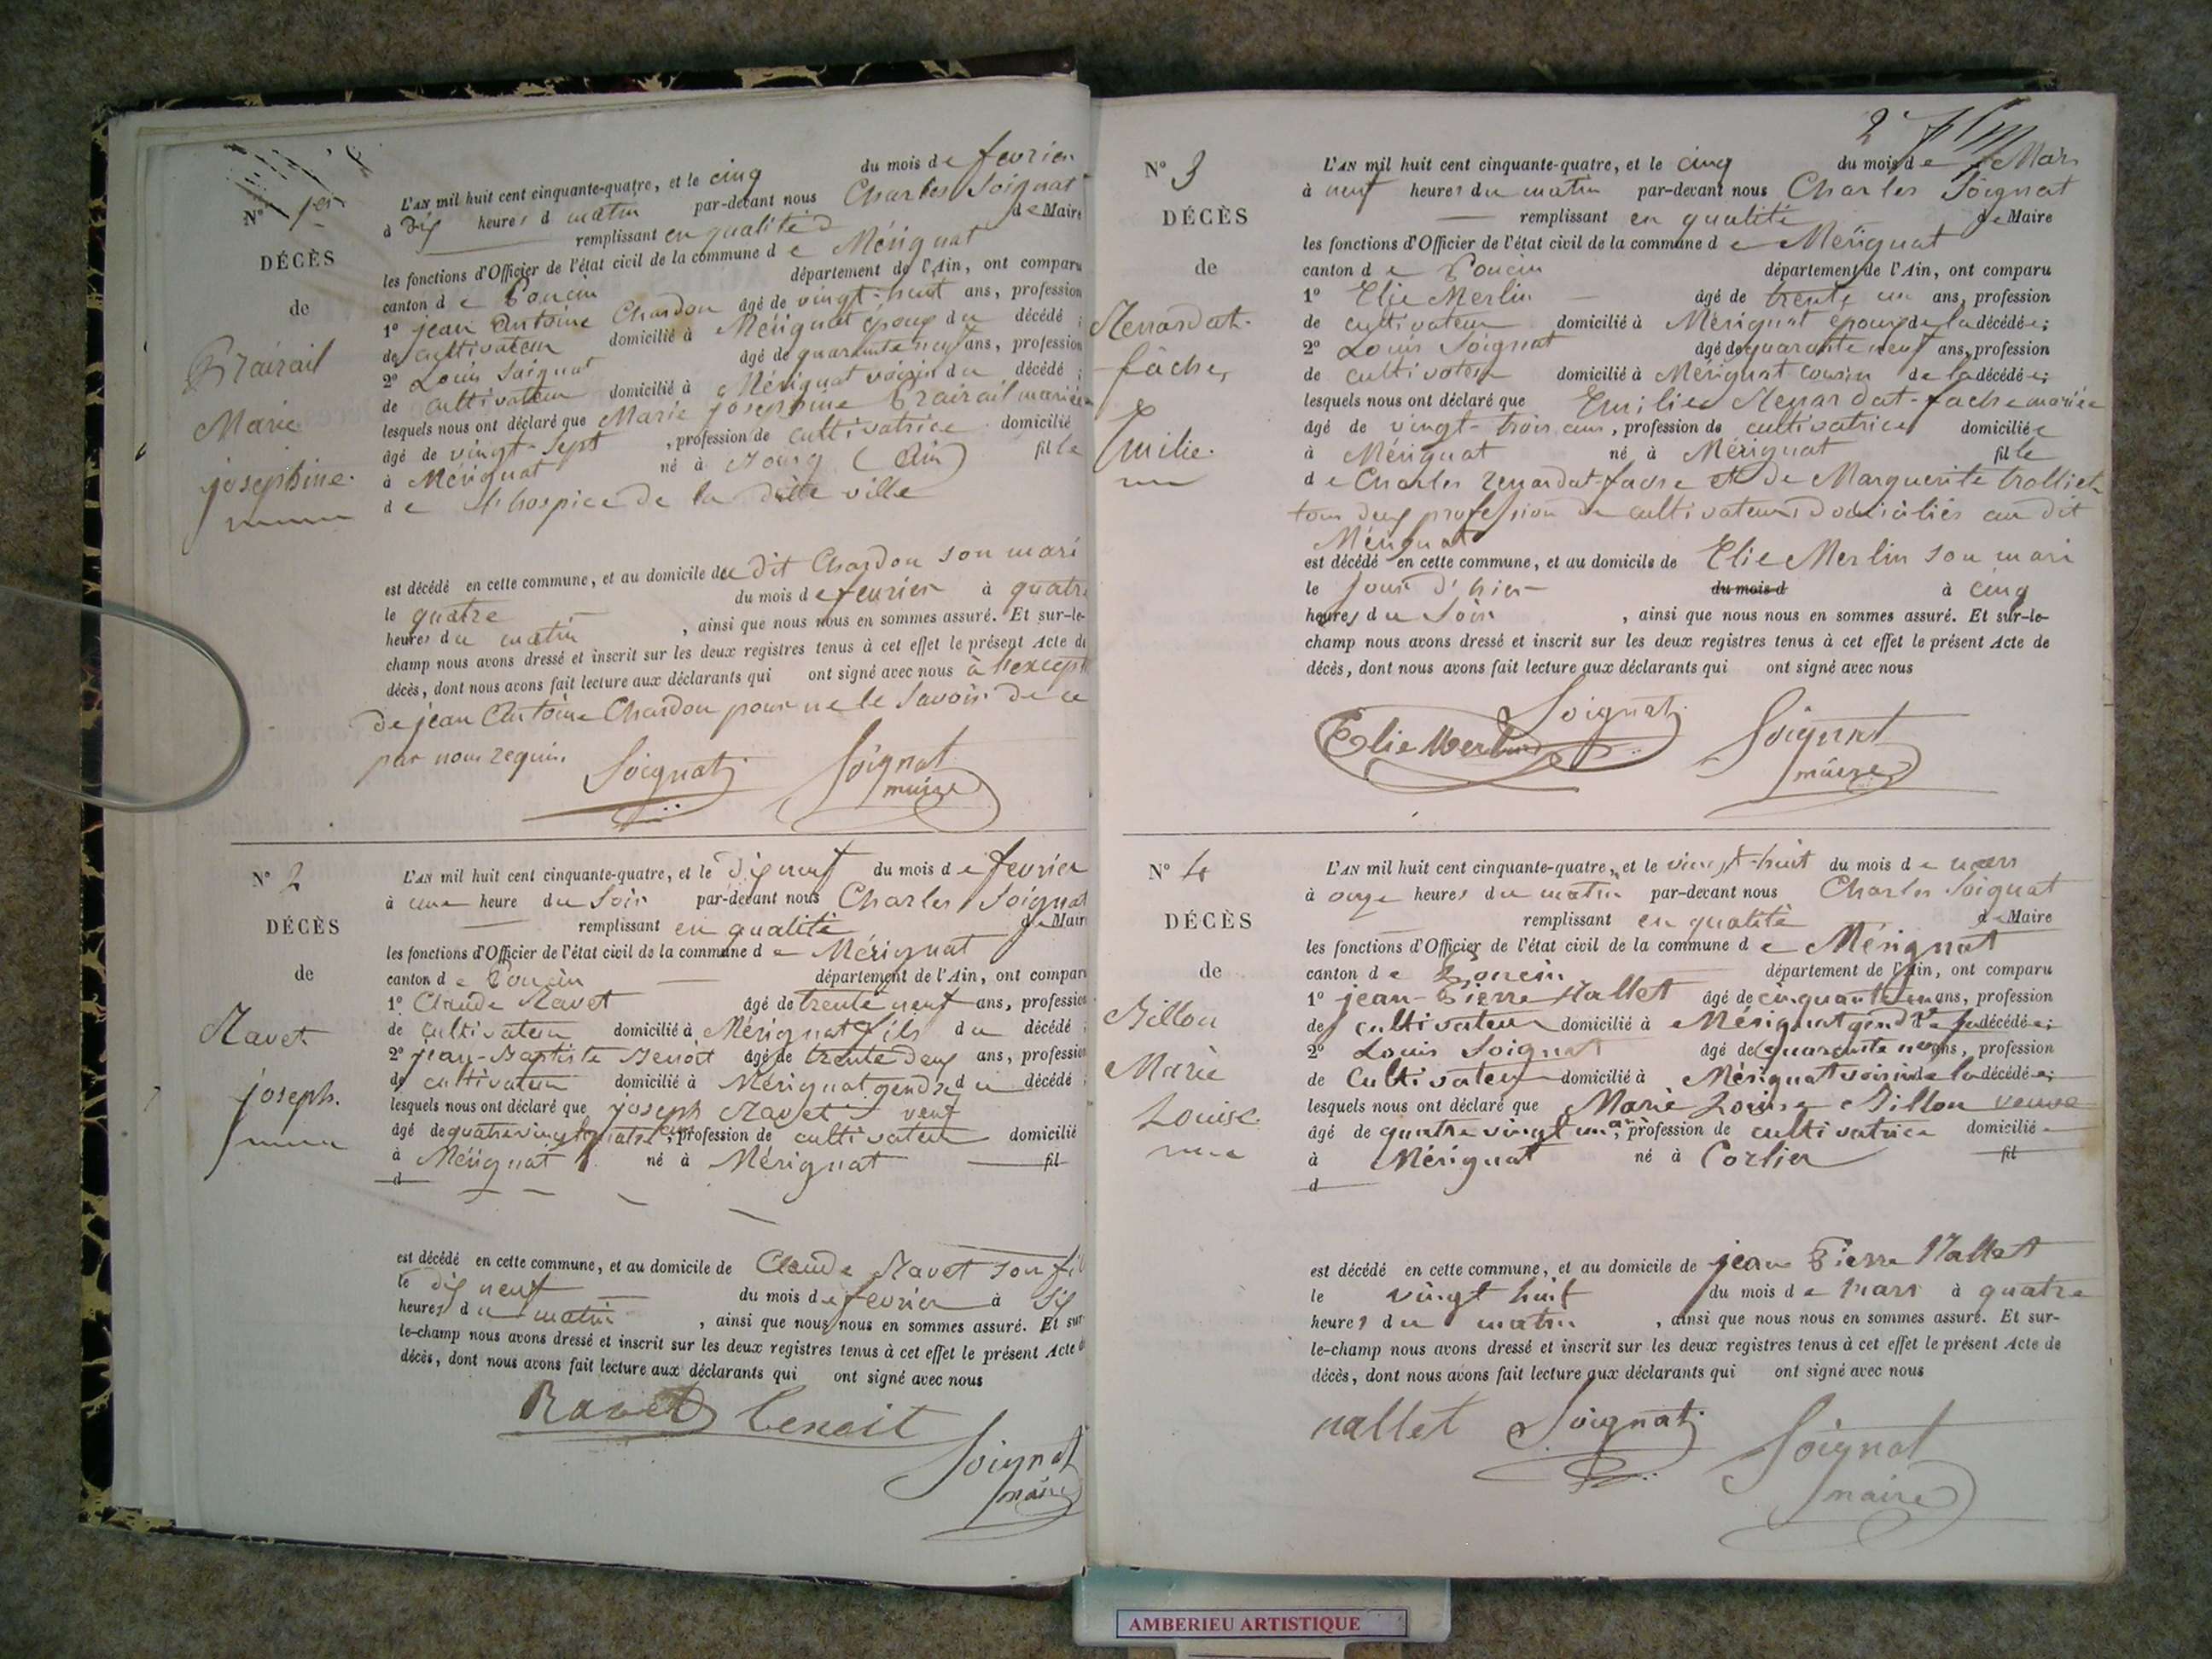 N° 1er
DÉCÈS
de
Prairail
Marie
josephine.
L'AN mil huit cent cinquante-quatre, et le cinq du mois de fevrier
à dix heures d matin par-devant nous Charles Soignat
remplissant en qualité de Maire
les fonctions d'Officier de l'état civil de la commune de Mérignat
canton de Poncin département de l'Ain, ont comparu
1° jean Antoine Chardon âgé de vingt-huit ans, profession
de cultivateur domicilié à Mérignat époux du décédé ;
2° Louis Soignat âgé de quarante neuf ans, profession
de cultivateur domicilié à Mérignat voisin du décédé ;
lesquels nous ont déclaré que Marie josephine Prairail mariée
âgé de vingt-sept , profession de cultivatrice domicilié
à Mérignat né à Bourg (Ain) fille
de l'hospice de la ditte ville
est décédé en cette commune, et au domicile du dit Chardon son mari
le quatre du mois de fevrier à quatre
heures du matin , ainsi que nous nous en sommes assuré. Et sur-le-
champ nous avons dressé et inscrit sur les deux registres tenus à cet effet le présent Acte de
décès, dont nous avons fait lecture aux déclarants qui ont signé avec nous à l'except
de jean Antoine Chardon pour ne le savoir de ce
par nous requis.
Soignat Soignat
maire
N° 2
DÉCÈS
de
Ravet
joseph.
L'AN mil huit cent cinquante-quatre, et le dix neuf du mois de fevrier
à une heure du soir par-devant nous Charles Soignat
remplissant en qualité de Maire
les fonctions d'Officier de l'état civil de la commune de Mérignat
canton de Poncin département de l'Ain, ont comparu
1° Claude Ravet âgé de trente neuf ans, profession
de cultivateur domicilié à Mérignat fils du décédé ;
2° jean-Baptiste Benoit âgé de trente deux ans, profession
de cultivateur domicilié à Mérignat gendre du décédé ;
lesquels nous ont déclaré que joseph Ravet veuf
âgé de quatre vingt quatre ans, profession de cultivateur domicilié
à Mérignat né à Mérignat fil
d
est décédé en cette commune, et au domicile de Claude Ravet son fil
le dix neuf du mois de fevrier à six
heures du matin , ainsi que nous nous en sommes assuré. Et sur
le-champ nous avons dressé et inscrit sur les deux registres tenus à cet effet le présent Acte d
décès, dont nous avons fait lecture aux déclarants qui ont signé avec nous
Ravet benoit
Soignat
maire
2e
N° 3
DÉCÈS
de
Renardat-
fâche,
Emilie.
L'AN mil huit cent cinquante-quatre, et le cinq du mois de Mars
à neuf heures du matin par-devant nous Charles Soignat
remplissant en qualité de Maire
les fonctions d'Officier de l'état civil de la commune de Mérignat
canton de Poncin département de l'Ain, ont comparu
1° Elie Merlin âgé de trente un ans, profession
de cultivateur domicilié à Mérignat epoux de la décédée;
2° Louis Soignat âgé de quarante neuf ans, profession
de cultivateur domicilié à Mérignat cousin de la décédée;
lesquels nous ont déclaré que Emilie Renardat-fache mariée
âgé de vingt-trois ans, profession de cultivatrice domiciliée
à Mérignat né à Mérignat fille
de Charles renardat-fache et de Marguerite trolliet
tous deux profession de cultivateurs domiciliés au dit
Mérignat
est décédé en cette commune, et au domicile de Elie Merlin son mari
le jour d'hier du mois d à cinq
heures du soir , ainsi que nous nous en sommes assuré. Et sur-le-
champ nous avons dressé et inscrit sur les deux registres tenus à cet effet le présent Acte de
décès, dont nous avons fait lecture aux déclarants qui ont signé avec nous
Elie Merlin Soignat Soignat
maire
N° 4
DÉCÈS
de
Billon
Marie
Louise.
L'AN mil huit cent cinquante-quatre, et le vingt-huit du mois de mars
à onze heures du matin par-devant nous Charles Soignat
remplissant en qualité de Maire
les fonctions d'Officier de l'état civil de la commune de Mérignat
canton de Poncin département de l'Ain, ont comparu
1° jean-Pierre Nallet âgé de cinquante un ans, profession
de cultivateur domicilié à Mérignat gendre de la décédée;
2° Louis Soignat âgé de quarante neuf ans, profession
de Cultivateur domicilié à Mérignat voisin de la décédée;
lesquels nous ont déclaré que Marie Louise Billon veuve
âgé de quatre vingt un ans, profession de cultivatrice domiciliée
à Mérignat né à Corlier fil
d
est décédé en cette commune, et au domicile de jean Pierre Nallet
le vingt huit du mois de mars à quatre
heures du matin , ainsi que nous nous en sommes assuré. Et sur-
le-champ nous avons dressé et inscrit sur les deux registres tenus à cet effet le présent Acte de
décès, dont nous avons fait lecture aux déclarants qui ont signé avec nous
nallet Soignat Soignat
maire
AMBERIEU ARTISTIQUE